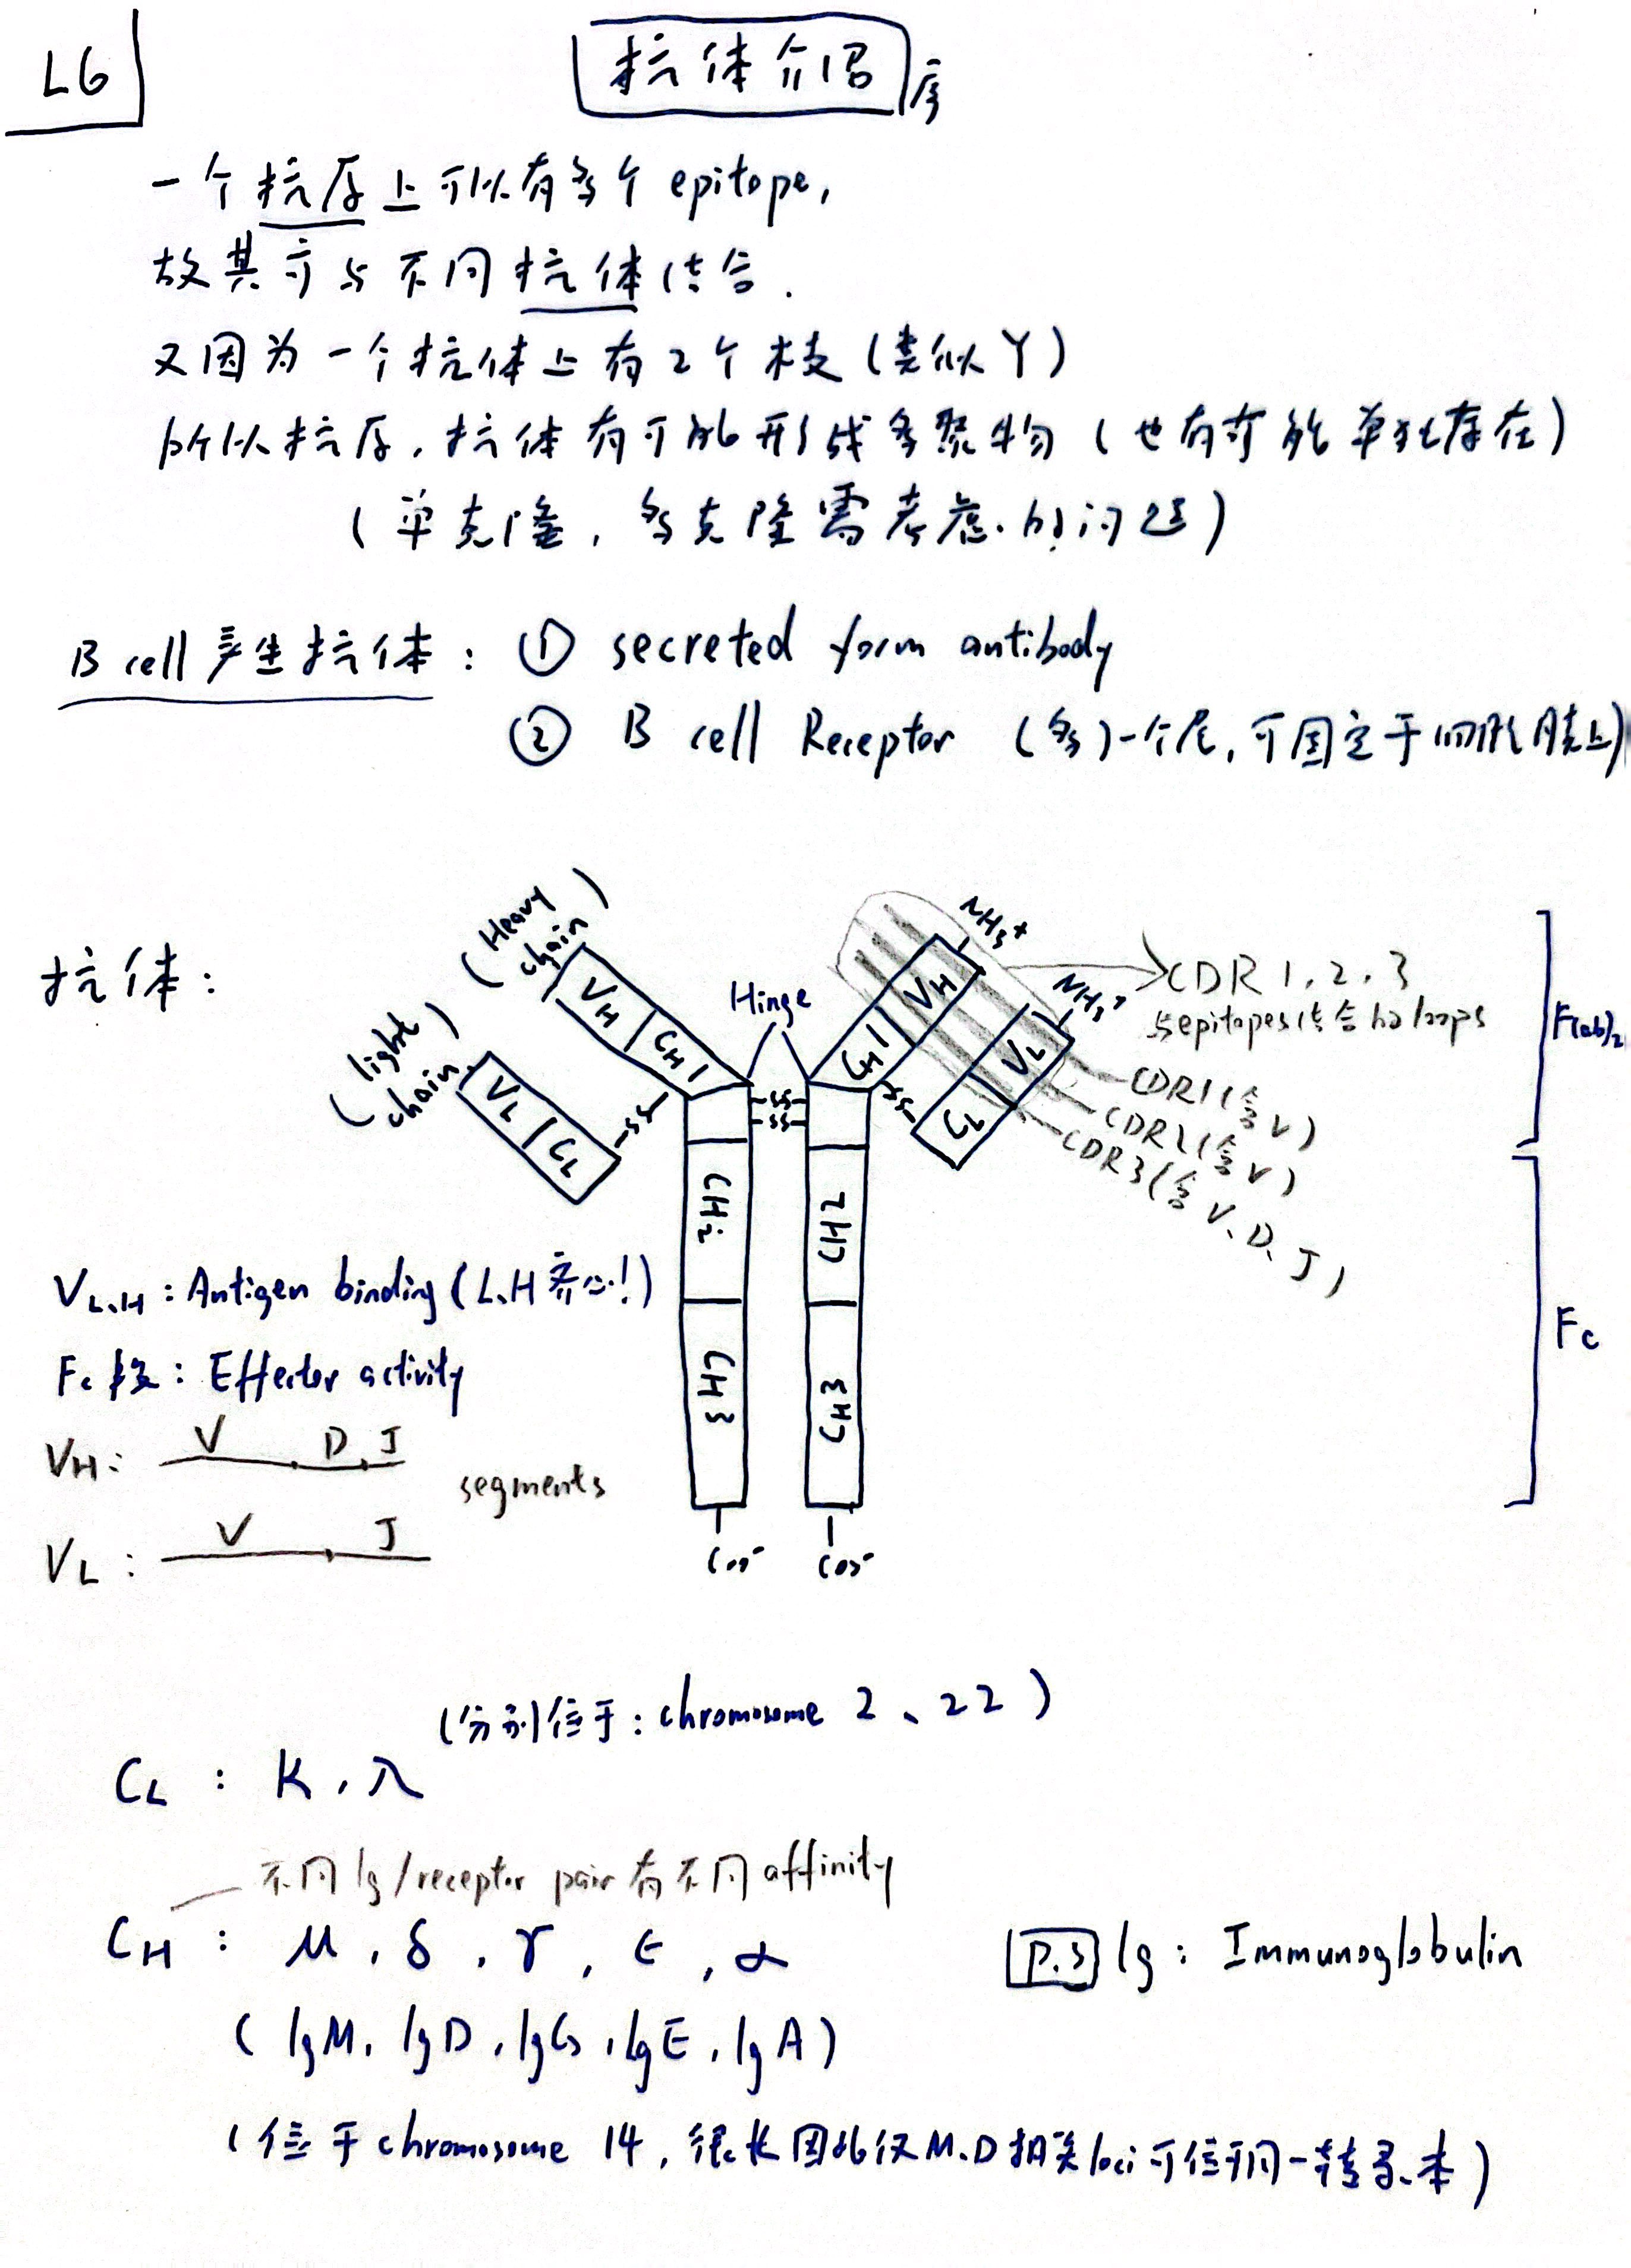 L6
抗体介绍
一个抗原上可以有多个 epitope,
故其可与不同抗体结合.
又因为一个抗体上有2个枝(类似Y)
所以抗原,抗体有可能形成多聚物(也有可能单独存在)
(单克隆,多克隆需考虑的问题)
B cell 产生抗体: ① secreted form antibody
② B cell Receptor (多)一个尾,可固定于细胞膜上)
抗体:
(Heavy chain)
(light chain)
VH CH1
VL CL
Hinge
-ss-
-ss-
-ss-
CH2
CH3
Coo-
CH1 VH NH3+
CL VL NH3+
-ss-
CH2
CH3
Coo-
CDR 1, 2, 3
与epitopes结合的loops
CDR1(含V)
CDR2(含V)
CDR3(含V、D、J)
F(ab)2
Fc
VL、H : Antigen binding (L、H齐心!)
Fc段: Effector activity
VH: V D J
segments
VL: V J
(分别位于: chromosome 2、22)
CL : K, λ
不同Ig/receptor pair有不同affinity
CH : μ, δ, γ, ε, α
P.S Ig: Immunoglobulin
(IgM, IgD, IgG, IgE, IgA)
(位于chromosome 14, 很长因此仅M、D相关loci可位于同一转录本)